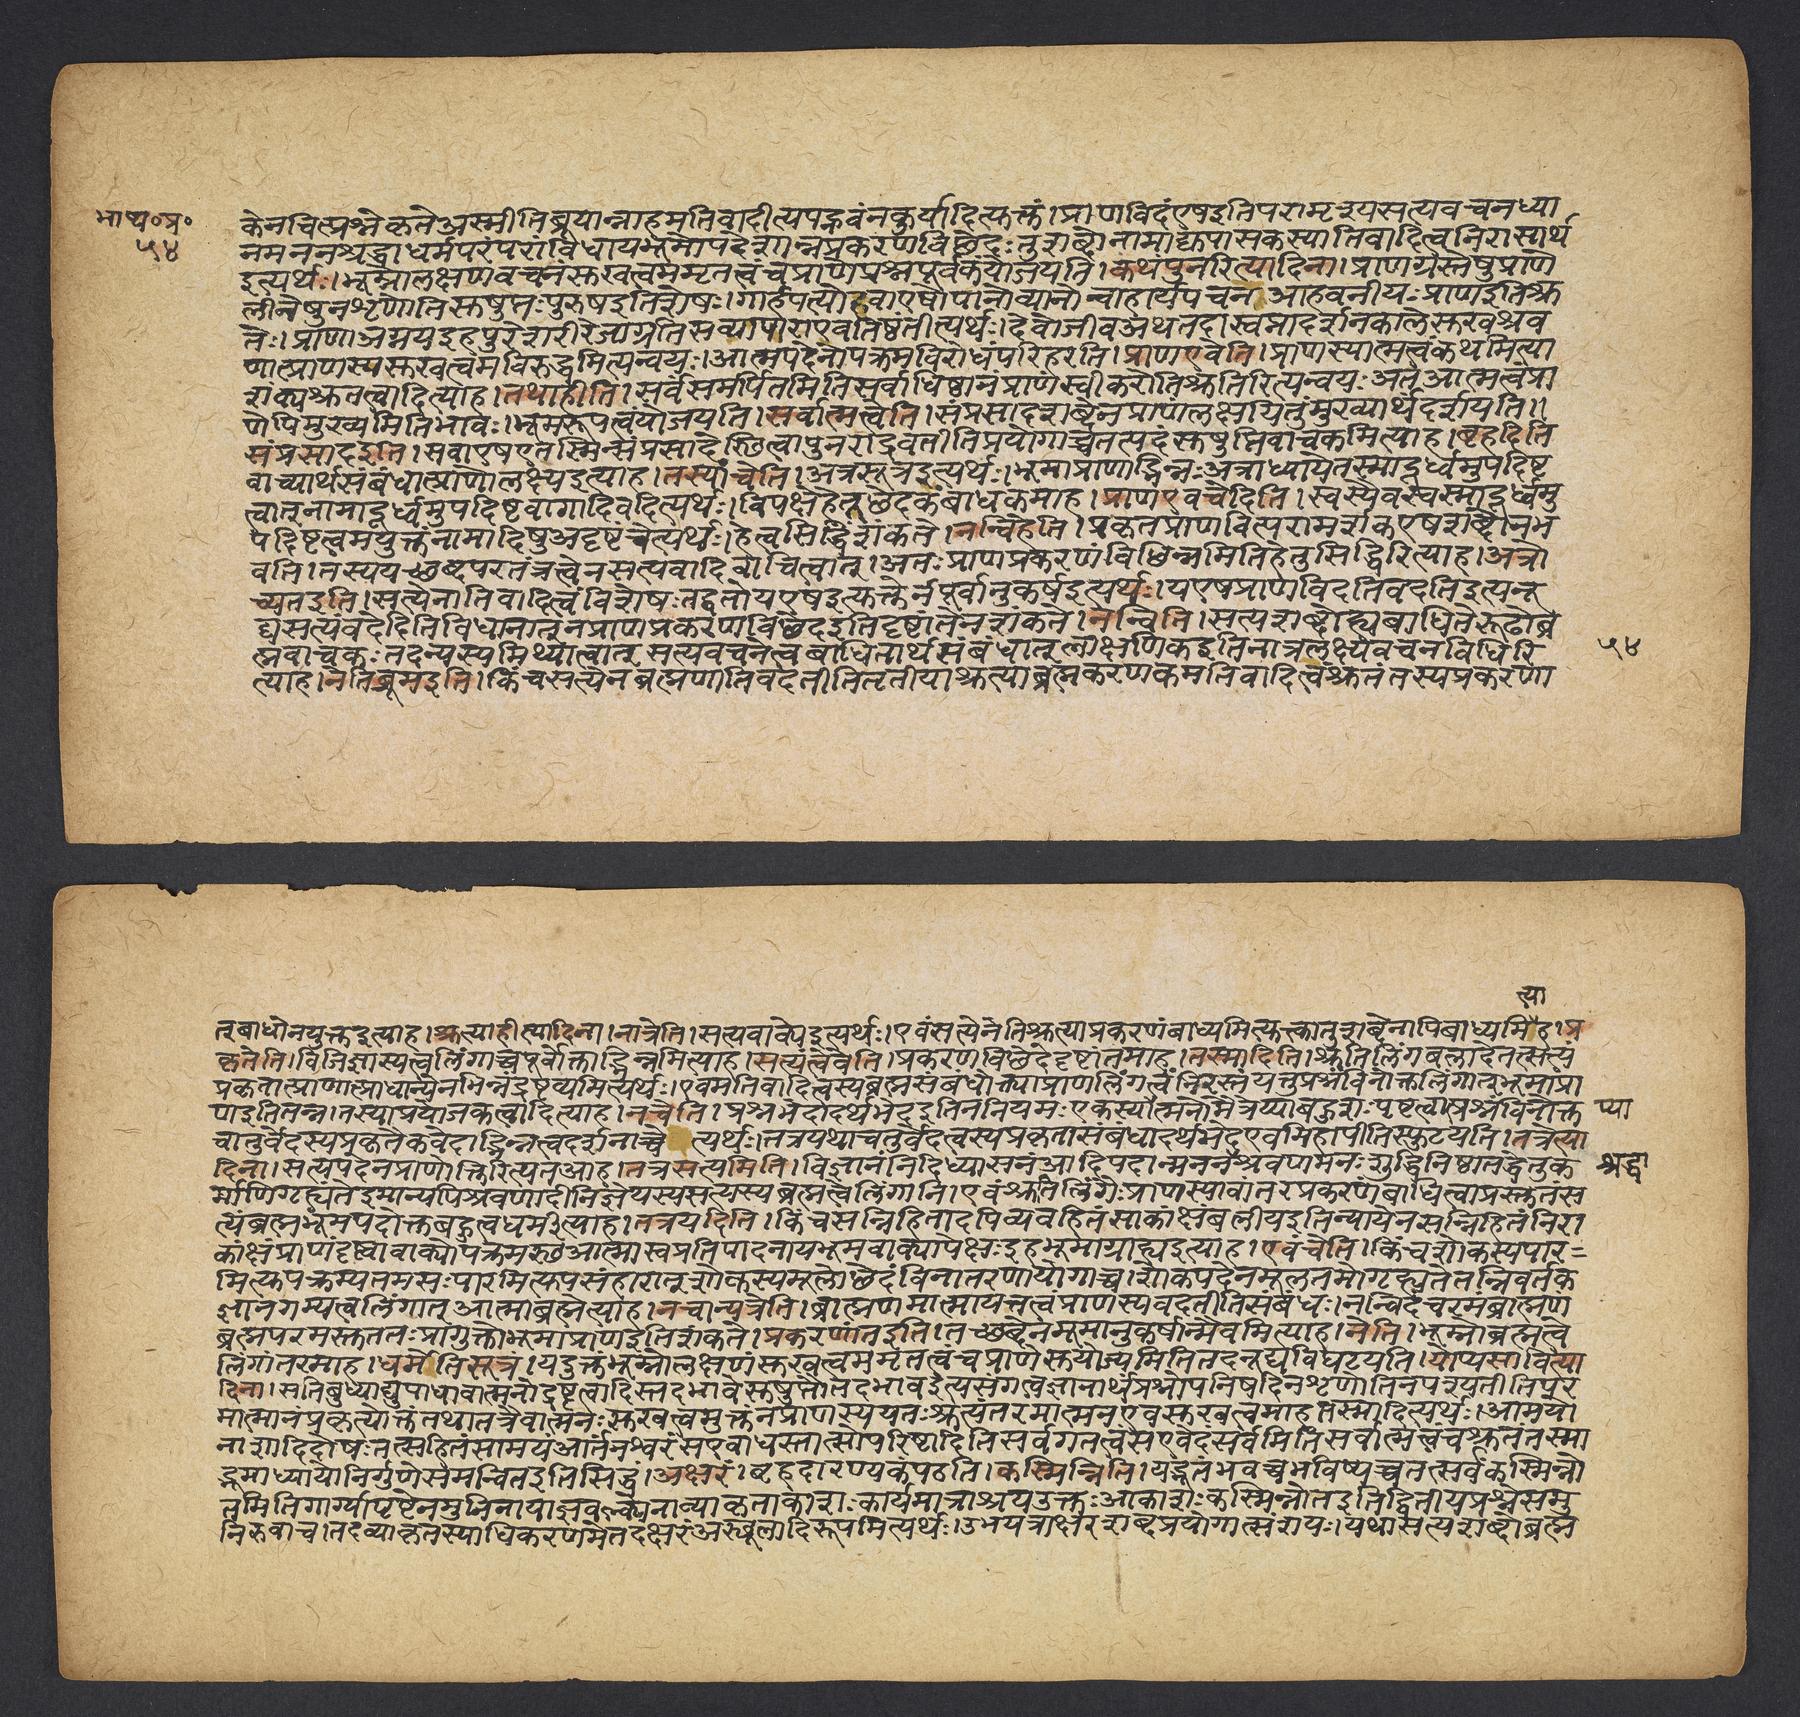 भाष्य॰प्र॰
५४
केनचित्प्रश्नेकृतेअस्मीतिब्रूयान्नाहमतिवादीत्यपह्नवंनकुर्यादित्युक्तं।प्राणविदंएषइतिपरामृश्यसत्यवचनध्या
नमननश्रद्धाधर्मपरंपरांविधायभूमोपदेशान्नप्रकरणविछेदः।तुशब्दोनामाद्युपासकस्यातिवादित्वनिरासार्थ
इत्यर्थः।भूम्नोलक्षणवचनंसुखत्वममृतत्वंचप्राणेप्रश्नपूर्वकंयोजयति।कथंपुनरित्यादिना।प्राणग्रस्तेषुप्राणे
लीनेषुनशृणोतिसुषुप्तःपुरुषइतिशेषः।गार्हपत्योहवाएषोपानोव्यानोन्वाहार्यपचनआहवनीयःप्राणइतिश्रु
तेः।प्राणाअग्नयइहपुरेशरीरेजाग्रतिसव्यापाराएवतिष्ठंतीत्यर्थः।देवोजीवःअथतदास्वप्नादर्शनकालेसुखश्रव
णात्प्राणस्यसुखत्वमविरुद्धमित्यन्वयः।आत्मपदेनोपक्रमविरोधंपरिहरति।प्राणएवेति।प्राणस्यात्मत्वंकथमित्या
शंक्यश्रुतत्वादित्याह।तथाहीति।सर्वंसमर्पितमितिसर्वाधिष्ठानंप्राणंस्वीकरोतिश्रुतिरित्यन्वयःअतआत्मत्वंप्रा
णेपिमुख्यमितिभावः।भूमरूपत्वंयोजयति।सर्वात्मत्वेति।संप्रसादशब्देनप्राणंलक्षयितुंमुख्यार्थंदर्शयति।।
संप्रसादइति।सवाएषएतस्मिन्संप्रसादेस्थित्वापुनराद्रवतीतिप्रयोगाच्चैतत्पदंसुषुप्तिवाचकमित्याह।बृहदिति
वाच्यार्थसंबंधात्प्राणोलक्ष्यइत्याह।तस्यांचेति।अत्रसूत्रइत्यर्थः।भूमाप्राणाद्भिन्नःअत्राध्यायेतस्मादूर्ध्वमुपदिष्ट
त्वात्नामादूर्ध्वमुपदिष्टवागादिवदित्यर्थः।विपक्षेहेतूछेदकंबाधकमाह।प्राणएवचेदिति।स्वस्यैवस्वस्मादूर्ध्वमु
पदिष्टत्वमयुक्तंनामादिषुअदृष्टंचेत्यर्थः।हेत्वसिद्धिंशंकते।नन्विहेति।प्रकृतप्राणवित्परामर्शकएषशब्दोनभ
वति।तस्ययच्छब्दपरतंत्रत्वेनसत्यवादिवाचित्वात्।अतःप्राणप्रकरणंविछिन्नमितिहेतुसिद्धिरित्याह।अत्रो
च्यतइति।सत्येनातिवादित्वंविशेषःतद्वतोयएषइत्युक्तेर्नपूर्वानुकर्षइत्यर्थः।यएषप्राणविदतिवदतिइत्यनू
द्यसत्यंवदेदितिविधानात्नप्राणप्रकरणविछेदइतिदृष्टांतेनशंकते।नन्विति।सत्यशब्दोह्यबाधितेरूढोब्र
ह्मवाचकःतदन्यस्यमिथ्यात्वात्सत्यवचनत्वबाधितार्थसंबंधात्लाक्षणिकइतिनात्रलक्ष्यवचनविधिरि
त्याह।नेतिब्रूमइति।किंचसत्येनब्रह्मणातिवदतीतितृतीयाश्रुत्याब्रह्मकरणकमतिवादित्वंश्रुतंतस्यप्रकरणा
५४
त्या
त्बाधोनयुक्तइत्याह।श्रुत्याहीत्यादिना।नात्रेति।सत्यवाक्येइत्यर्थः।एवंसत्येनेतिश्रुत्याप्रकरणंबाध्यमित्युक्त्वातुशब्देनापिबाध्यमित्याह।प्र
कृतेति।विजिज्ञास्यत्वलिंगाच्चपूर्वोक्ताद्भिन्नमित्याह।सत्यंत्वेवेति।प्रकरणविछेदेदृष्टांतमाह।तस्मादिति।श्रुतिलिंगबलादेतत्सत्यं
प्रकृतात्प्राणात्प्राधान्येनभिन्नंद्रष्टव्यमित्यर्थः।एवमतिवादित्वस्यब्रह्मसंबंधोक्त्याप्राणलिंगत्वंनिरस्तंयत्तुप्रश्नंविनोक्तलिंगात्भूमाप्रा
णइतितन्न।तस्याप्रयोजकत्वादित्याह।नचेति।प्रश्नभेदादर्थभेदइतिननियमःएकस्यात्मनोमैत्रेय्याबहुशःपृष्टत्वात्प्रश्नंविनोक्त
प्या
चातुर्वेदस्यप्रकृतैकवेदाद्भिन्नत्वदर्शनाच्चेत्यर्थः।तत्रयथाचतुर्वेदत्वस्यप्रकृतासंबंधादर्थभेदएवमिहापीतिस्फुटयति।तत्रेत्या
दिना।सत्यपदेनप्राणोक्तिरित्यतआह।तत्रसत्यमिति।विज्ञानंनिदिध्यासनंआदिपदान्मननश्रवणमनःशुद्धिनिष्ठातद्धेतुक
श्रद्धा
र्माणिगृह्यंतेइमान्यपिश्रवणादीनिज्ञेयस्यसत्यस्यब्रह्मत्वेलिंगानि।एवंश्रुतिलिंगैःप्राणस्यावांतरप्रकरणंबाधित्वाप्रस्तुतंस
त्यंब्रह्मभूमपदोक्तबहुत्वधर्मइत्याह।तत्रयदिति।किंचसन्निहितादपिव्यवहितंसाकांक्षंबलीयइतिन्यायेनसन्निहितंनिरा
कांक्षंप्राणंदृष्ट्वावाक्योपक्रमस्थआत्मास्वप्रतिपादनायभूमवाक्यापेक्षःइहभूमाग्राह्यइत्याह।एवंचेति।किंचशोकस्यपार=
मित्युपक्रम्यतमसःपारमित्युपसंहारात्शोकस्यमूलोछेदंविनातरणायोगाच्च।शोकपदेनमूलतमोगृह्यतेतन्निवर्तक
ज्ञानगम्यत्वलिंगात्आत्माब्रह्मेत्याह।नचान्यत्रेति।ब्राह्मणमात्मायत्तत्वंप्राणस्यवदतीतिसंबंधः।नन्विदंचरमंब्राह्मणं
ब्रह्मपरमस्तुततःप्रागुक्तोभूमाप्राणइतिशंकते।प्रकरणांतइति।तच्छब्देनभूमानुकर्षान्मैवमित्याह।नेति।भूम्नोब्रह्मत्वे
लिंगांतरमाह।धर्मेतिसूत्रं।यदुक्तंभूम्नोलक्षणंसुखत्वममृतत्वंचप्राणेसुयोज्यमितितदनूद्यविघटयति।योप्यसावित्या
दिना।सतिबुध्याद्युपाधावात्मनोद्रष्टृत्वादिस्तदभावेसुषुप्तौतदभावइत्यसंगत्वज्ञानार्थंप्रश्नोपनिषदिनशृणोतिनपश्यतीतिपर
मात्मानंप्रकृत्योक्तंतथातत्रैवात्मनःसुखत्वमुक्तंनप्राणस्ययतःश्रुत्यंतरमात्मनएवसुखत्वमाहतस्मादित्यर्थः।आमयो
नाशादिदोषःतत्सहितंसामयंआर्तंनश्वरंसएवाधस्तात्सउपरिष्टादितिसर्वगतत्वंसएवेदंसर्वमितिसर्वात्मत्वंचश्रुतंतस्मा
द्भूमाध्यायोनिर्गुणेसमन्वितइतिसिद्धं।अक्षरं।बृहदारण्यकंपठति।कस्मिन्निति।यद्भूतंभवच्चभविष्यच्चतत्सर्वंकस्मिन्नो
तमितिगार्ग्यापृष्टेनमुनिनायाज्ञवल्क्येनाव्याकृताकाशःकार्यमात्राश्रयउक्तःआकाशःकस्मिन्नोतइतिद्वितीयप्रश्नेसमु
निरुवाच।तदव्याकृतस्याधिकरणमेतदक्षरंअस्थूलादिरूपमित्यर्थः।उभयत्राक्षरशब्दप्रयोगात्संशयः।यथासत्यशब्दोब्रह्म